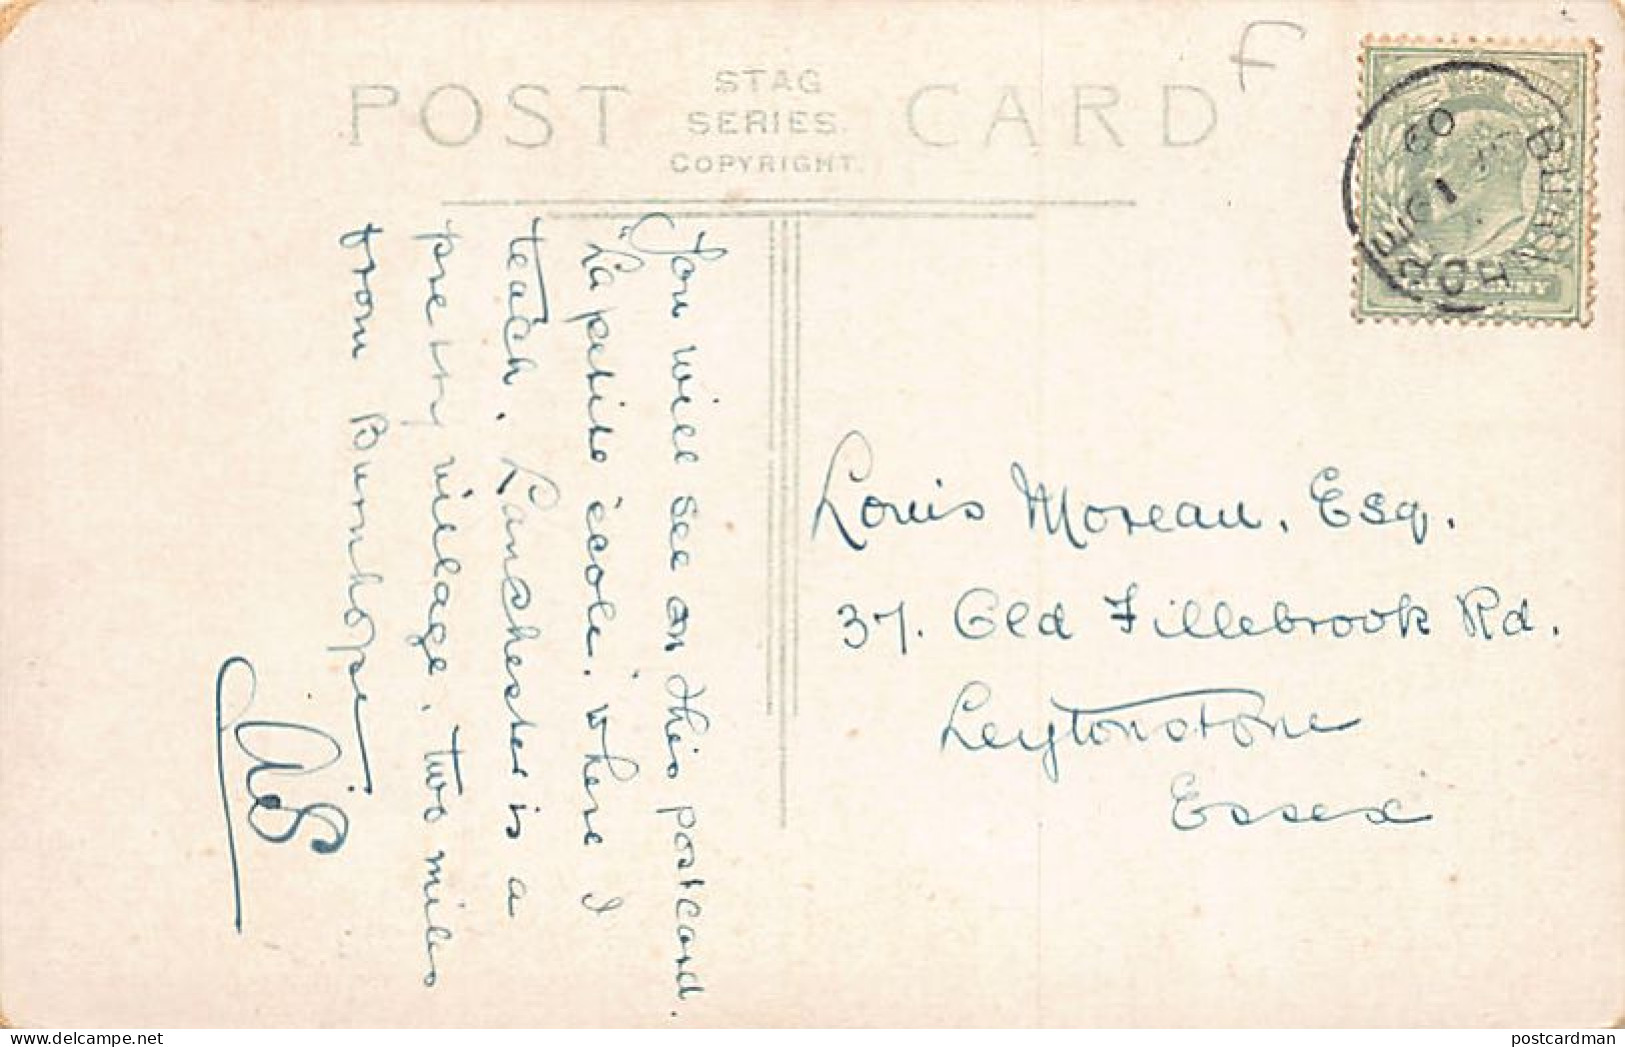 F
POST CARD
STAG
SERIES.
COPYRIGHT.
BURNHOPE
09
You will see on this postcard.
"La petite école." where I
teach. Lanchester is a
pretty village, two miles
from Burnhope
Louis Moreau. Esq.
37. Old Fillebrook Rd.
Leytonstone
Essex
postcardman